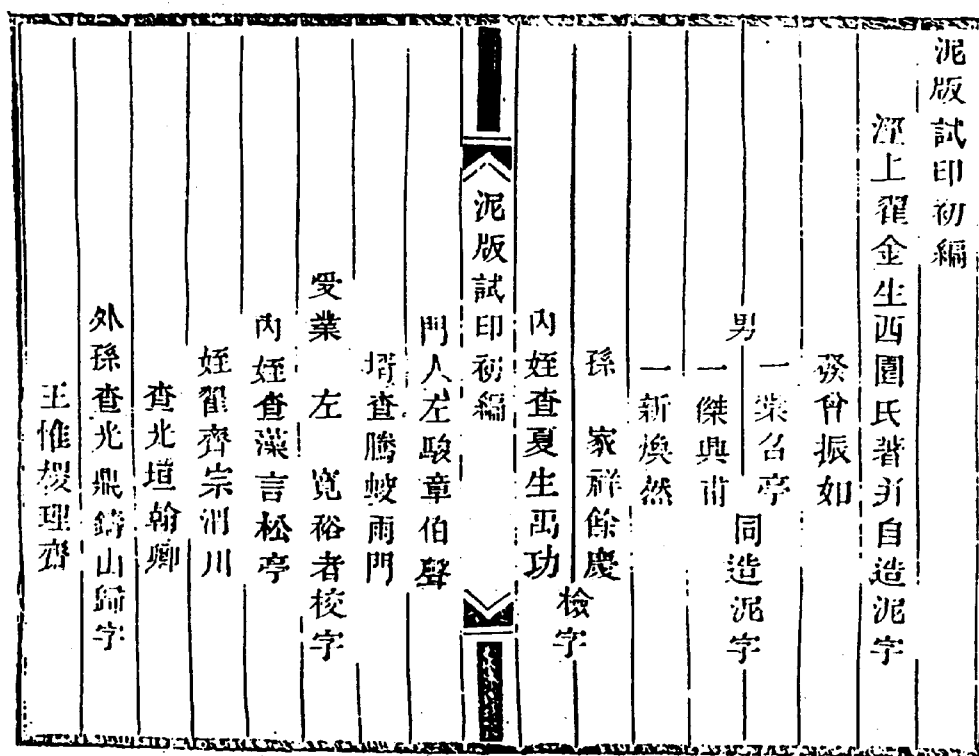 泥版試印初編
涇上翟金生西園氏著并自造泥字
發曾振如
男
一棠召亭
一傑興甫
一新煥然
同造泥字
孫 家祥餘慶
內姪查夏生禹功
檢字
泥版試印初編
門人左駿章伯聲
壻查騰蛟雨門
受業 左 寬裕者
校字
內姪查藻言松亭
姪翟齊宗渭川
查光垣翰卿
外孫查光鼎鑄山
歸字
王惟稷理齊